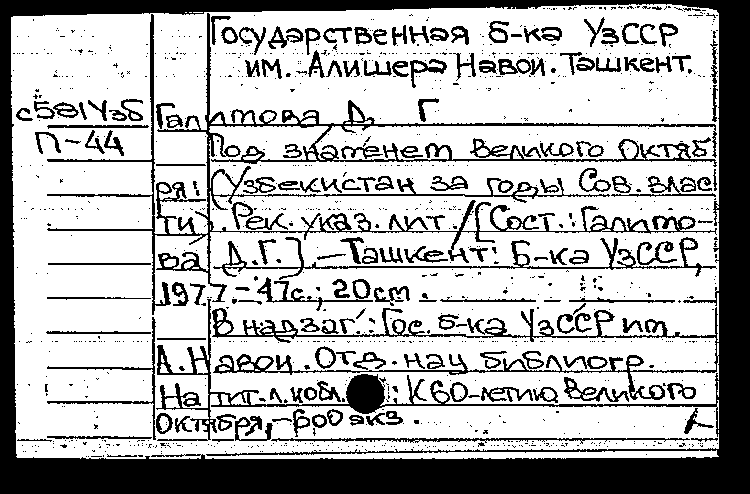 Государственная Б-ка УзССР
им. Алишера Навои. Ташкент.
с581Узб Галитова, Д. Г
П-44 Под знатенет Великого Октяб
ря: (Узбекистан за годы Сов. влас
ти). Рек. указ. лит. / [Сост.: Галито-
ва Д.Г.]. – Ташкент: Б-ка УзССР,
1977. – 47с.; 20cm.
В надзаг.: Гос. б-ка УзССР им.
А. Навои. Отд. нау библиогр.
На тит. л. и обл. : К 60-летию Великого
Октября, – 600 экз.